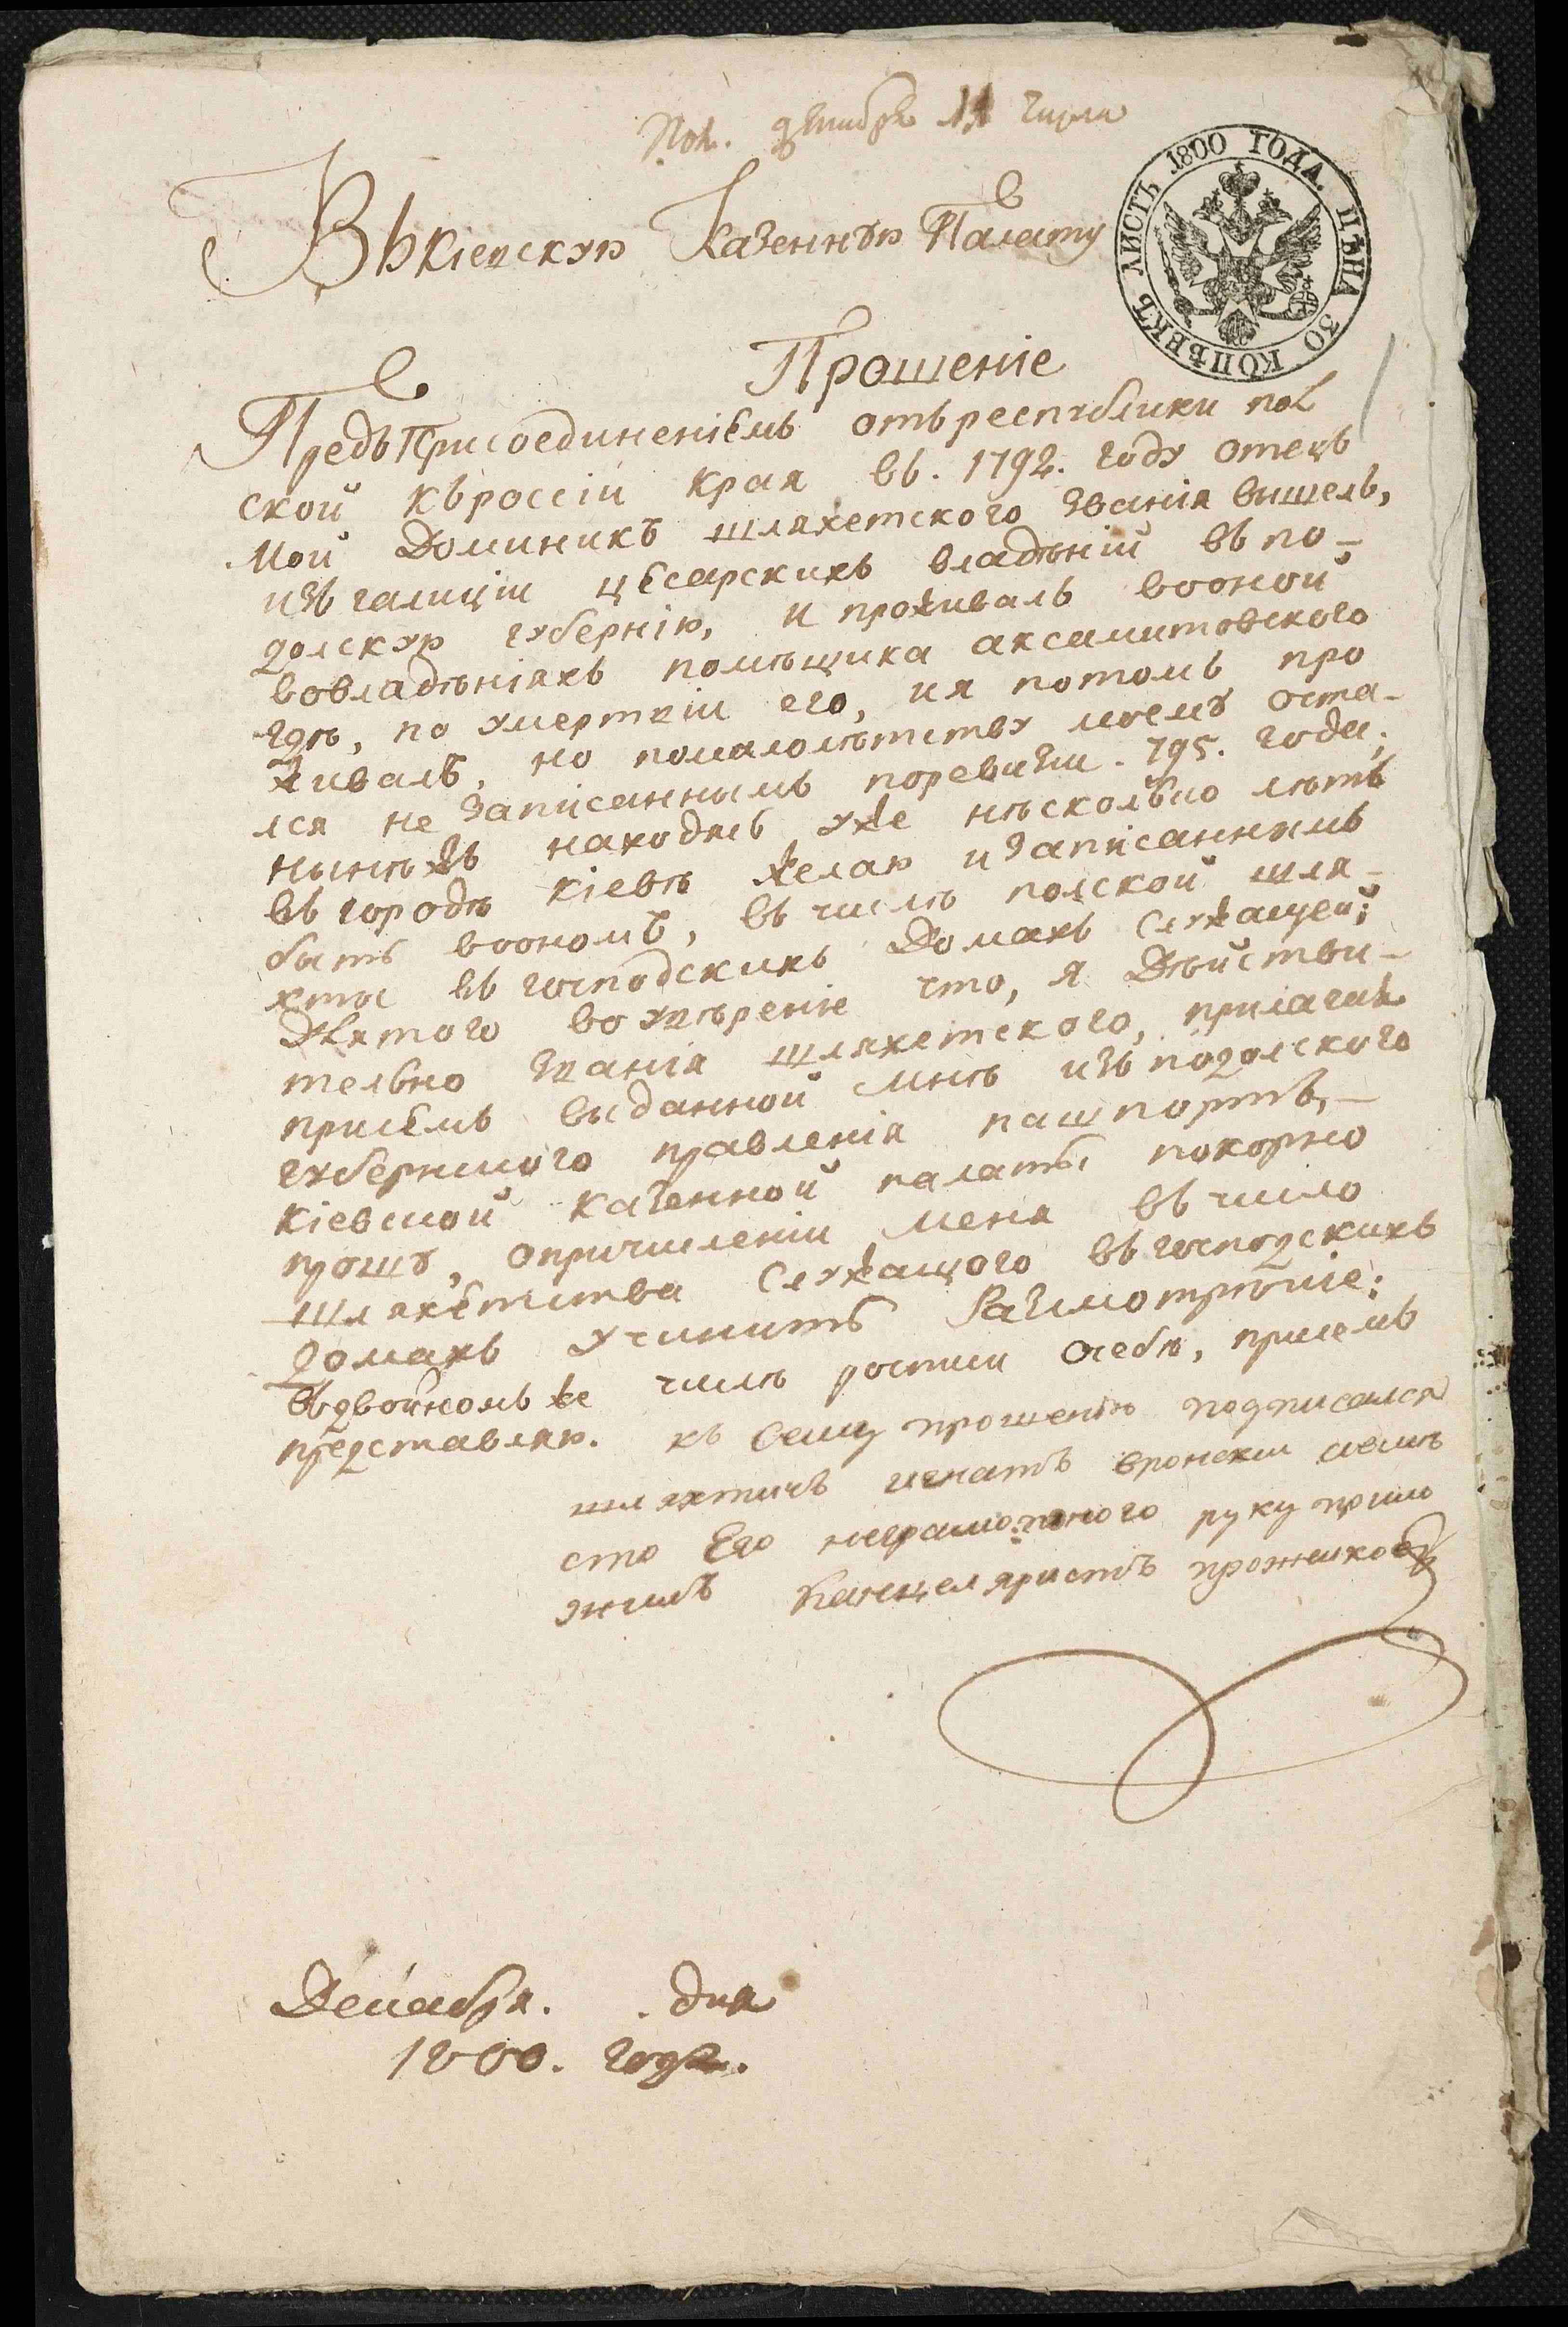 Пол. декабря 11 числа
ЛИСТЪ 1800 ГОДА. ЦѢНА 30 КОПѢЕКЪ
Въ Кіевскую Казенную Палату
Прошеніе
Предъ Присоединеніемъ отъ республики пол
ской къ россіи края въ. 1792. году отецъ
мой Доминикъ шляхетского званія вышелъ,
изъ галиціи цесарскихъ владѣній въ по-
долскую губернію, и проживалъ во оной
во владѣніяхъ помѣщика аксамитовского
гдѣ, по умертвіи его, и я потомъ про
живалъ, но по малолѣтству моему оста-
лся не записаннымъ по ревизіи. 795. года;
нынѣ жъ находясь уже нѣсколько лѣтъ
въ городѣ кіевѣ желаю и записаннымъ
быть во ономъ, въ числѣ полской шля-
хты въ господскихъ Домахъ служащей;
Для того во увѣреніе что, я Дѣйстви-
телно званія шляхетского, прилагая
при семъ выданной мнѣ изъ подолского
губернского правленія пашпортъ,-
кіевской казенной палаты покорно
прошу, о причисленіи меня въ число
шляхетства служащого въ господскихъ
домахъ учинить разсмотрѣніе;
въ двойномъ же числѣ роспись о себѣ, при семъ
представляю. къ сему прошенію подписался
шляхтичъ игнатъ вронски вмѣ
сто Его неграмотного руку прило
жилъ Канцеляристъ
Декабря. . дня
1800. года.